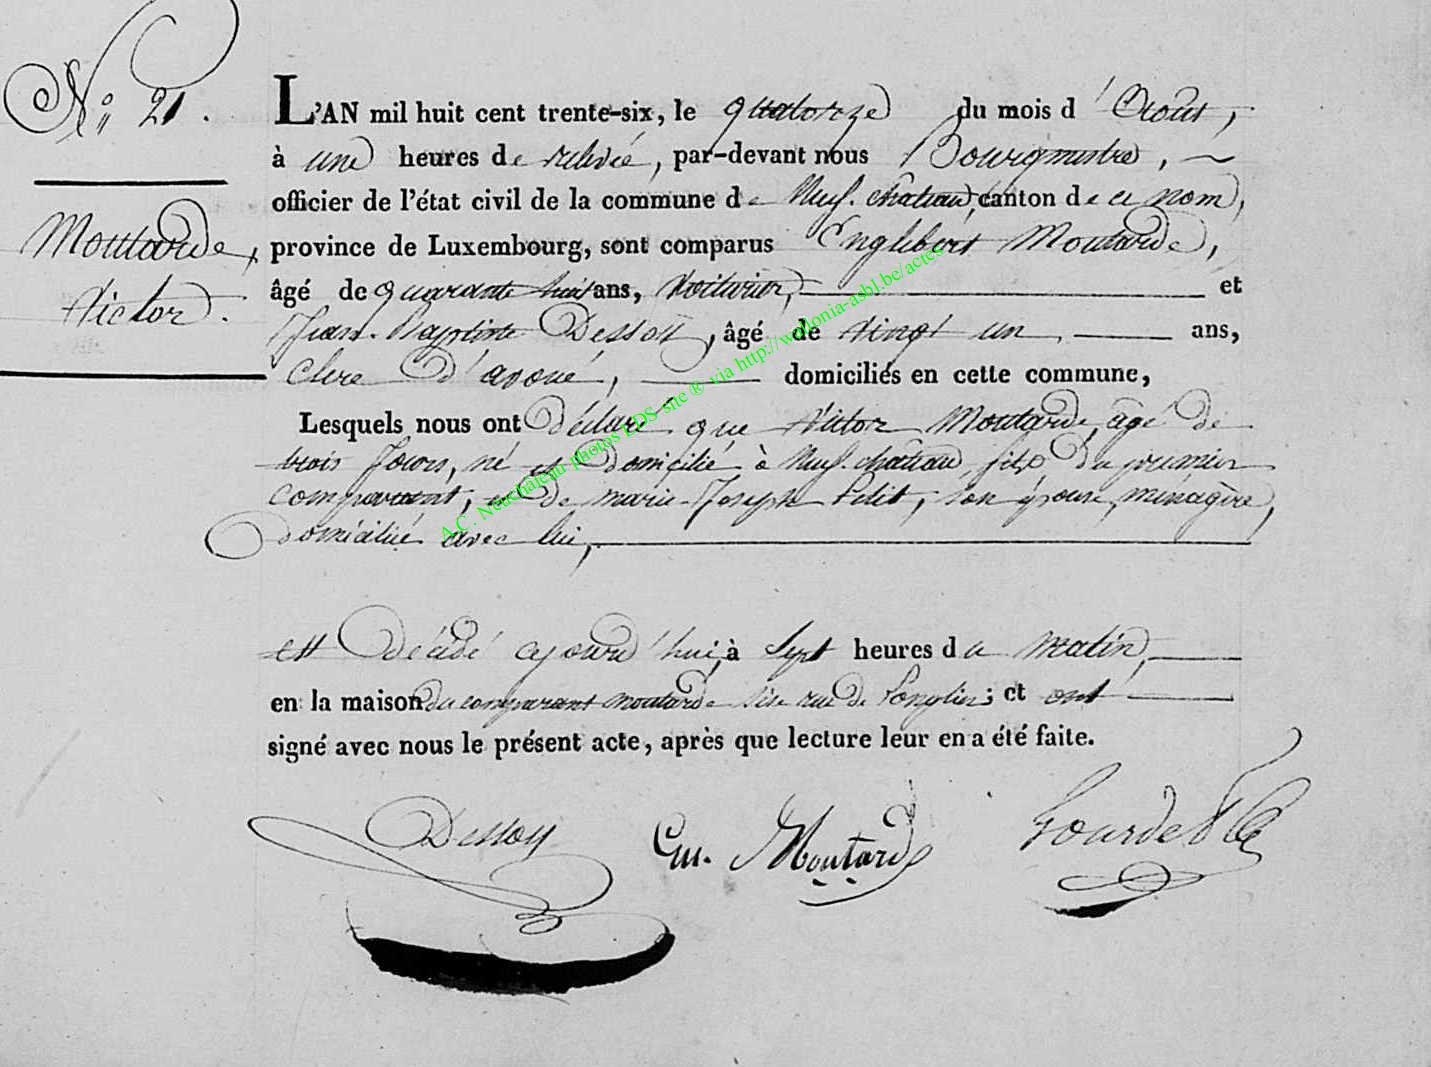 N° 21.
Moutarde,
Victor.
L'AN mil huit cent trente-six, le quatorze du mois d'Août,
à une heures de relevée, par-devant nous Bourgmestre,
officier de l'état civil de la commune de Neuf-château, canton de ce nom,
province de Luxembourg, sont comparus Englebert Moutarde,
âgé de quarante huit ans, Voiturier, et
Jean-Baptiste Dessoy, âgé de vingt un ans,
Clerc d'avoué, domiciliés en cette commune,
Lesquels nous ont déclaré que Victor Moutarde, âgé de
trois jours, né et domicilié à Neuf-château, fils du premier
comparant, et de marie-Joseph Petit, son épouse, ménagère,
domiciliée avec lui,
est décédé ajourd'hui, à sept heures du matin,
en la maison du comparant moutarde sise rue de Longlier; et ont
signé avec nous le présent acte, après que lecture leur en a été faite.
Dessoy Em. Moutarde
A.C. Neufchâteau photos EDS-site ® via http://wallonia-asbl.be/actes